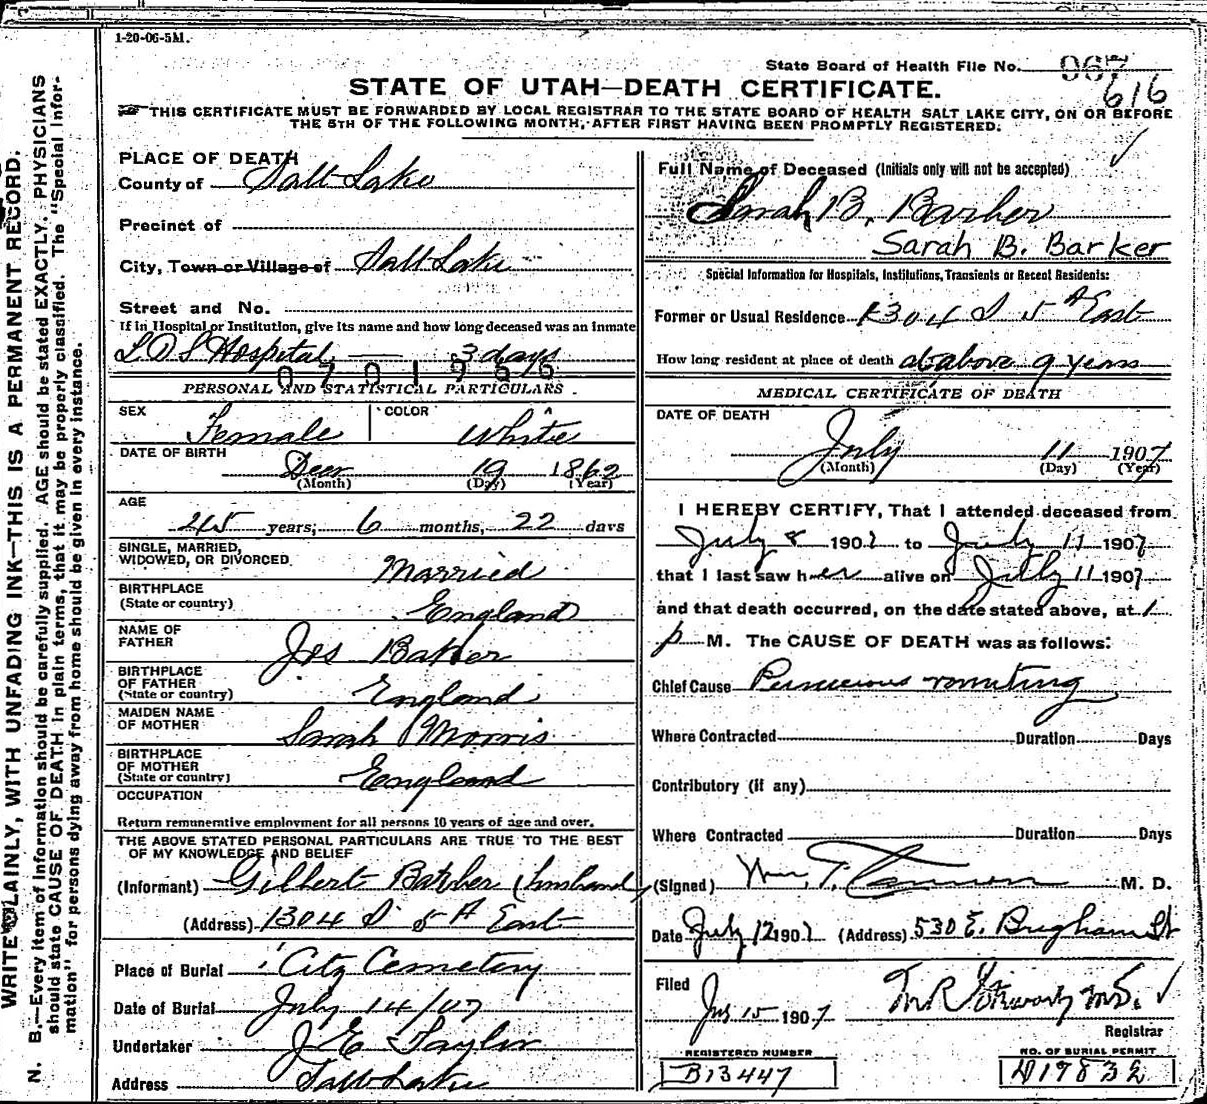 1-20-06-5M.
State Board of Health File No. 967
616
STATE OF UTAH—DEATH CERTIFICATE.
THIS CERTIFICATE MUST BE FORWARDED BY LOCAL REGISTRAR TO THE STATE BOARD OF HEALTH SALT LAKE CITY, ON OR BEFORE
THE 5TH OF THE FOLLOWING MONTH, AFTER FIRST HAVING BEEN PROMPTLY REGISTERED.
WRITE PLAINLY, WITH UNFADING INK—THIS IS A PERMANENT RECORD.
N. B.—Every item of information should be carefully supplied. AGE should be stated EXACTLY. PHYSICIANS
should state CAUSE OF DEATH in plain terms, that it may be properly classified. The "Special Infor-
mation" for persons dying away from home should be given in every instance.
PLACE OF DEATH
County of Salt Lake
Precinct of
City, Town or Village of Salt Lake
Street and No.
If in Hospital or Institution, give its name and how long deceased was an inmate
L D S Hospital — 3 days
0701966
PERSONAL AND STATISTICAL PARTICULARS
SEX Female COLOR White
DATE OF BIRTH
Decr 19 1862
(Month) (Day) (Year)
AGE
45 years; 6 months, 22 days
SINGLE, MARRIED,
WIDOWED, OR DIVORCED. Married
BIRTHPLACE
(State or country) England
NAME OF
FATHER Jos
BIRTHPLACE
OF FATHER
(State or country) England
MAIDEN NAME
OF MOTHER Sarah Morris
BIRTHPLACE
OF MOTHER
(State or country) England
OCCUPATION
Return remunerative employment for all persons 10 years of age and over.
THE ABOVE STATED PERSONAL PARTICULARS ARE TRUE TO THE BEST
OF MY KNOWLEDGE AND BELIEF
(Informant) Gilbert (husband)
(Address) 1304 S 5th East
Place of Burial City Cemetery
Date of Burial July 14/07
Undertaker J E Taylor
Address Salt Lake
Full Name of Deceased (Initials only will not be accepted)
Sarah B. Barker
Sarah B. Barker
Special Information for Hospitals, Institutions, Transients or Recent Residents:
Former or Usual Residence 1304 S 5th East
How long resident at place of death at above 9 years
MEDICAL CERTIFICATE OF DEATH
DATE OF DEATH
July 11 1907
(Month) (Day) (Year)
I HEREBY CERTIFY, That I attended deceased from
July 8 1907 to July 11 1907
that I last saw her alive on July 11 1907
and that death occurred, on the date stated above, at 1
p M. The CAUSE OF DEATH was as follows:
Chief Cause Pernicious vomiting
Where Contracted Duration Days
Contributory (if any)
Where Contracted Duration Days
(Signed) Wm. T. Cannon M. D.
Date July 12 1907 (Address) 530 E. Brigham St
Filed
July 15 1907 M.D.
Registrar
REGISTERED NUMBER
B13447
NO. OF BURIAL PERMIT
D17832